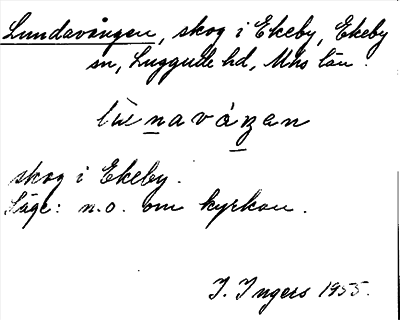 Lundavången, skog i Ekeby, Ekeby
sn, Luggude hd, Mhs län.
skog i Ekeby.
Läge: n.o. om kyrkan.
I. Ingers 1955.